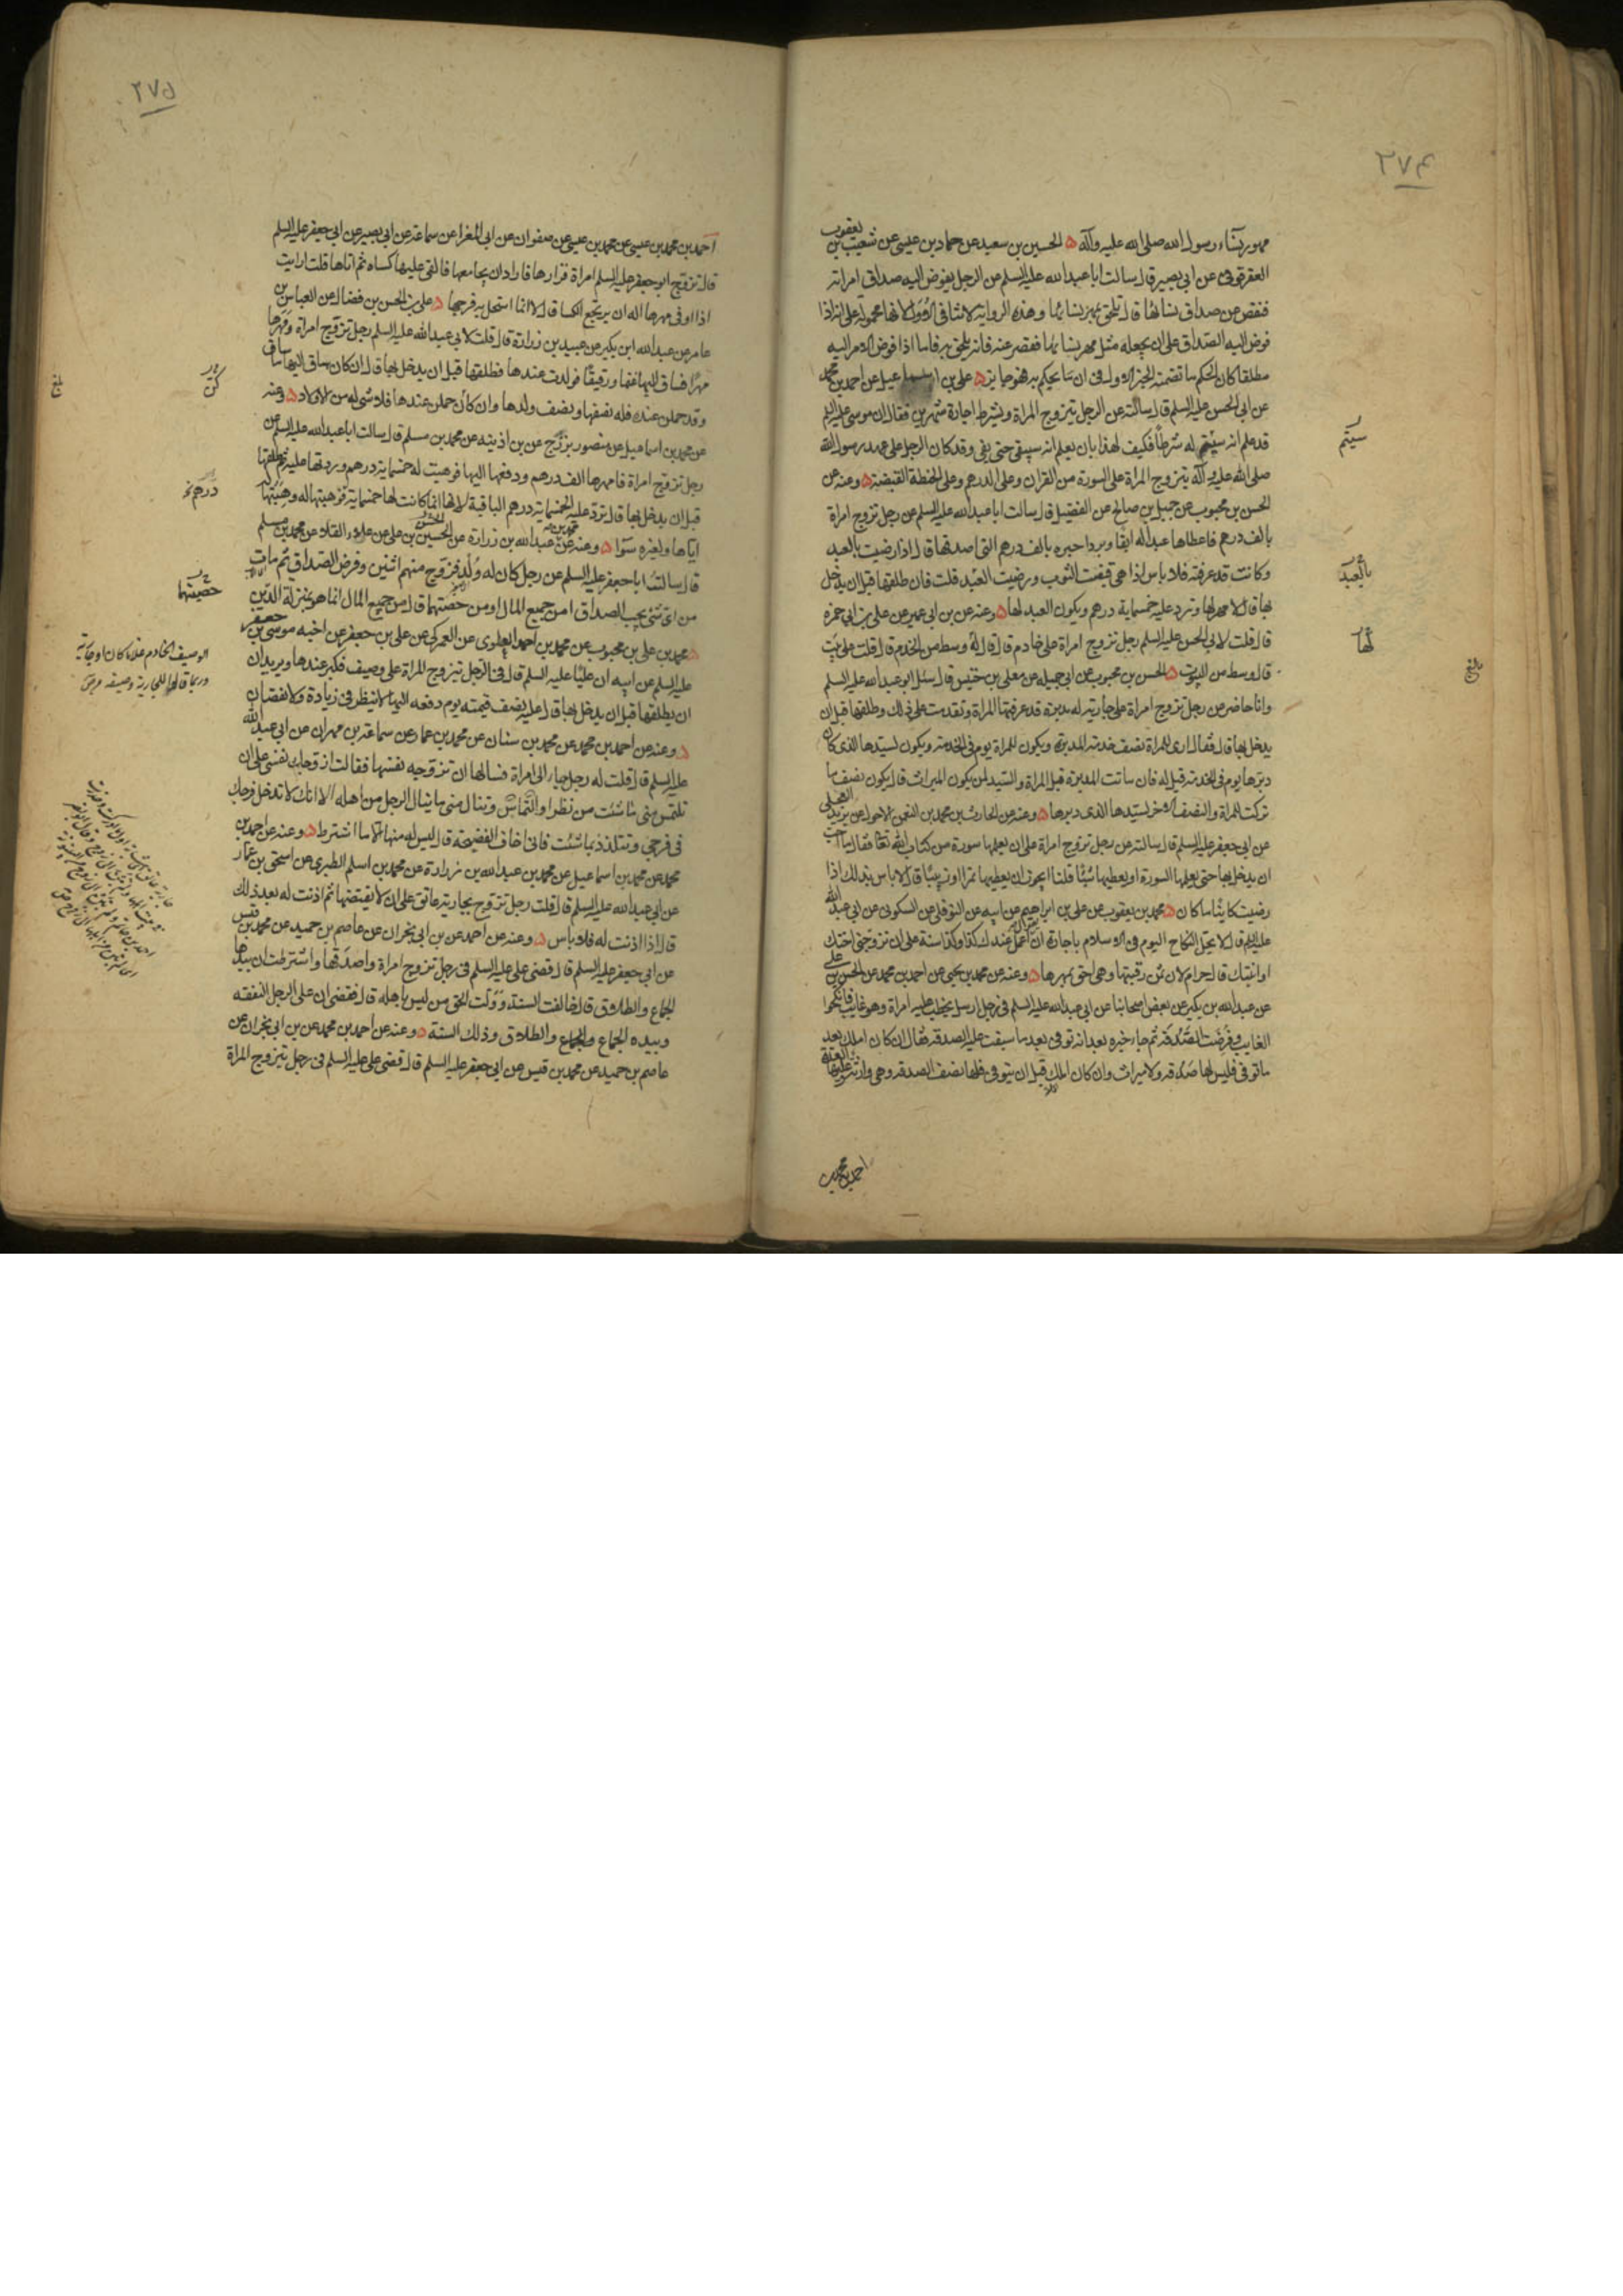 ٢٧٤
مهور نساء رسول الله صلى الله عليه وآله الحسين بن سعيد عن حماد بن عيسى عن شعيب بن يعقوب
العقرقوفى عن ابى بصير قال سالت ابا عبد الله عليه السلم عن الرجل يفوض اليه صداق امراته
فنقص عن صداق نسائها قال تلحق بمهر نسائها وهذه الرواية لا تنافى الاولة لانها محمولة على انه اذا
فوض اليه الصداق على ان يجعله مثل مهر نسائها فقصر عنه فانه يلحق به فاما اذا فوض الامر اليه
مطلقا كان الحكم ما تضمنه الخبر الاول فى ان ما يحكم به فهو جايز على بن اسمعيل عن احمد بن محمد
عن ابى الحسن عليه السلم قال سالته عن الرجل يتزوج المراة ويشترط اجارة شهرين فقال ان موسى عليه السلم
قد علم انه سيتم له شرطا فكيف لهذا بان يعلم انه سيبقى حتى يفى وقد كان الرجل على عهد رسول الله
صلى الله عليه وآله يتزوج المراة على السورة من القران وعلى الدرهم وعلى الحنطة القبضة وعنه عن
الحسن بن محبوب عن جميل بن صالح عن الفضيل قال سالت ابا عبد الله عليه السلم عن رجل تزوج امراة
بالف درهم فاعطاها عبدا له ابقا وبردا حبرة بالف درهم التى اصدقها قال اذا رضيت بالعبد
وكانت قد عرفته فلا باس اذا هى قبضت الثوب ورضيت العبد قلت فان طلقها قبل ان يدخل
بها قال لا مهر لها وترد عليه خمسماية درهم ويكون العبد لها وعنه عن بن ابى عمير عن على بن ابى حمزه
قال قلت لابى الحسن عليه السلم رجل تزوج امراة على خادم قال قال له وسط من الخدم قال قلت على بيت
قال وسط من البيوت الحسن بن محبوب عن ابى جميله عن معلى بن خنيس قال سئل ابو عبد الله عليه السلم
وانا حاضر عن رجل تزوج امراة على جارية له مدبرة قد عرفتها المراة وتقدمت على ذلك وطلقها قبل ان
يدخل بها قال فقال ارى للمراة نصف خدمة المدبرة ويكون للمراة يوم فى الخدمة ويكون لسيدها الذى كان
دبرها يوم فى الخدمة قيل له فان ماتت المدبرة قبل المراة والسيد لمن يكون الميراث قال يكون نصف ما
تركت للمراة والنصف الاخر لسيدها الذى دبرها وعنه عن الحارث بن محمد بن النعمن الاحول عن بريد العجلى
عن ابى جعفر عليه السلم قال سالته عن رجل تزوج امراة على ان يعلمها سورة من كتاب الله تعا فقال ما احب
ان يدخل بها حتى يعلمها السورة او يعطيها شيئا قلنا ايجوز ان يعطيها تمرا او زبيبا قال لا باس بذلك اذا
رضيت كاينا ما كان محمد بن يعقوب عن على بن ابراهيم عن ابيه عن النوفلى عن السكونى عن ابى عبد الله
عليه السلم قال لا يحل النكاح اليوم فى الاسلام باجارة ان اعمل عندك كذا وكذا سنة على ان تزوجنى اختك
او ابنتك قال حرام لان ثمن رقبتها وهى احق بمهرها وعنه عن محمد بن يحيى عن احمد بن محمد عن الحسن بن على
عن عبد الله بن بكير عن بعض اصحابنا عن ابى عبد الله عليه السلم فى رجل ارسل يخطب عليه امراة وهو غايب فانكحوا
الغايب وفرضت الصدقة ثم جاء خبره بعد انه توفى بعد ما سيقت عليه الصدقة فقال ان كان املك بعد
ما توفى فليس لها صدقه ولا ميراث وان كان املك قبل ان يتوفى فلها نصف الصدقه وهى وارثته وعليها العدة
سيتم
بالعبد
لها
احمد بن محمد بن
٢٧٥
احمد بن محمد بن عيسى عن محمد بن عيسى عن صفوان عن ابى المغرا عن سماعة عن ابى بصير عن ابى جعفر عليه السلم
قال تزوج ابو جعفر عليه السلم امراة فزارها فاراد ان يجامعها فالقى عليها كساه ثم اتاها قلت ارايت
اذا اوفى مهرها اله ان يرتجع الكسا قال لا انما استحل به فرجها على بن الحسن بن فضال عن العباس بن
عامر عن عبد الله ابن بكير عن عبيد بن زرارة قال قلت لابى عبد الله عليه السلم رجل تزوج امراة ومهرها
مهرا فساق اليها غنما ورقيقا فولدت عندها فطلقها قبل ان يدخل بها قال ان كان ساق اليها ما ساق
وقد حملن عنده فله نصفها ونصف ولدها وان كان حملن عندها فلا شى له من الاولاد وعنه
عن محمد بن اسماعيل عن منصور بزرج عن بن اذينه عن محمد بن مسلم قال سالت ابا عبد الله عليه السلم عن
رجل تزوج امراة فامهرها الف درهم ودفعها اليها فوهبت له خمسماية درهم وردتها عليه ثم طلقها
قبل ان يدخل بها قال ترد عليه الخمسماية درهم الباقية لانها انما كانت لها خمسماية فوهبتها له وهبتها
اياها ولغيره سواء وعنه عن محمد بن عبد الله بن زرارة عن الحسن بن على عن علاء القلا عن محمد بن مسلم
قال سالت ابا جعفر عليه السلم عن رجل كان له ولد فزوج منهم اثنين وفرض الصداق ثم مات
من اى شى يجب الصداق امن جميع المال او من حصتهما قال من جميع المال انما هو بمنزلة الدين
محمد بن على بن محبوب عن محمد بن احمد العلوى عن العمركى عن على بن جعفر عن اخيه موسى بن جعفر
عليه السلم عن ابيه ان عليا عليه السلم قال فى الرجل يتزوج المراة على وصيف فكبر عندها ويريد ان
ان يطلقها قبل ان يدخل بها قال عليه نصف قيمته يوم دفعه اليها لا ينظر فى زيادة ولا نقصان
وعنه عن احمد بن محمد عن محمد بن سنان عن محمد بن عمار عن سماعة بن مهران عن ابى عبد الله
عليه السلم قال قلت له رجل جاء الى امراة فسالها ان تزوجه نفسها فقالت ازوجك نفسى على ان
تلتمس منى ما شئت من نظر او التماس وتنال منى ما ينال الرجل من اهله الا انك لا تدخل فرجك
فى فرجى وتتلذذ بما شئت فانى اخاف الفضيحة قال ليس له منها الا ما اشترط وعنه عن احمد بن
محمد عن محمد بن اسماعيل عن محمد بن عبد الله بن زرارة عن محمد بن اسلم الطبرى عن اسحق بن عمار
عن ابى عبد الله عليه السلم قال قلت رجل تزوج بجارية عاتق على ان لا يفتضها ثم اذنت له بعد ذلك
قال اذا اذنت له فلا باس وعنه عن احمد عن بن ابى نجران عن عاصم بن حميد عن محمد بن قيس
عن ابى جعفر عليه السلم قال قضى على عليه السلم فى رجل تزوج امراة واصدقها واشترطت ان بيدها
الجماع والطلاق قال خالفت السنة وولت الحق من ليس باهله قال فقضى ان على الرجل النفقه
وبيده الجماع والجماع والطلاق وذلك السنة وعنه عن احمد بن محمد عن بن ابى نجران عن
عاصم بن حميد عن محمد بن قيس عن ابى جعفر عليه السلم قال قضى على عليه السلم فى رجل يتزوج المراة
حصتهما
الوصيف الخادم غلاما كان او جارية
وربما قالوا للجارية وصيفه